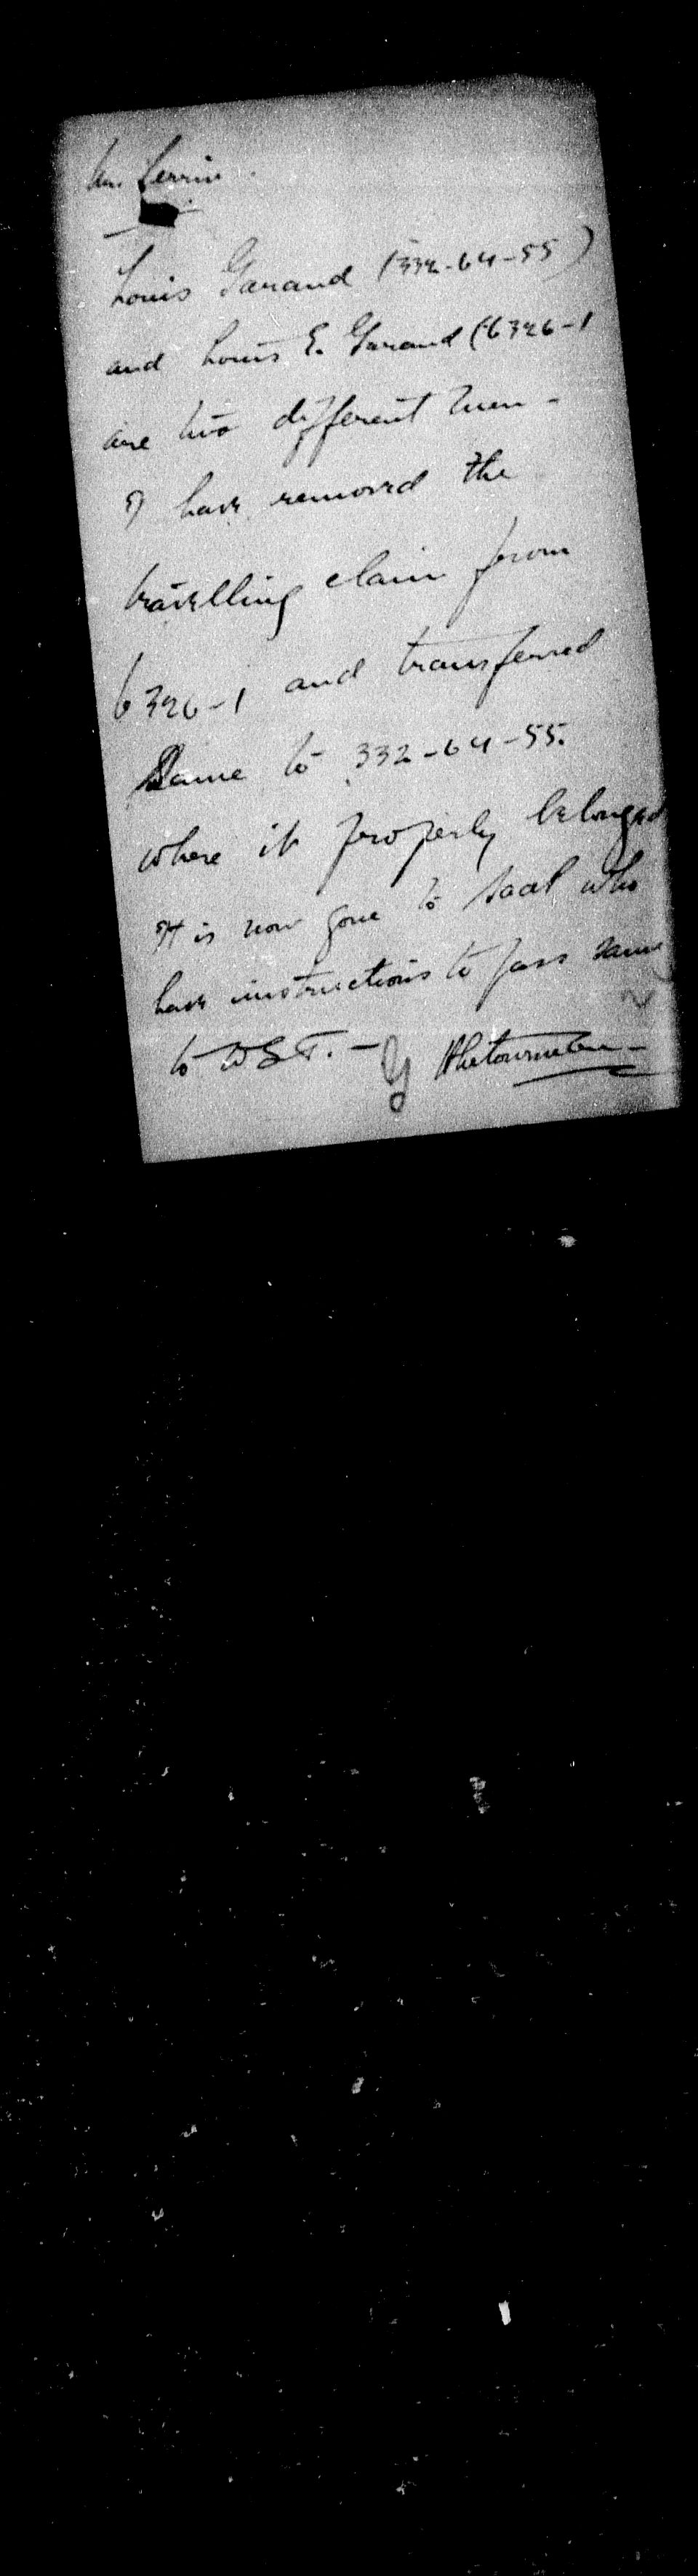 Mr. Perrin
Louis Garand (332-64-55)
and Louis E. Garand (6326-1
are two different men -
I have removed the
travelling claim from
6326-1 and transferred
Same to 332-64-55.
where it properly belonged
It is now gone to who
have instructions to pass same
to W S G. -